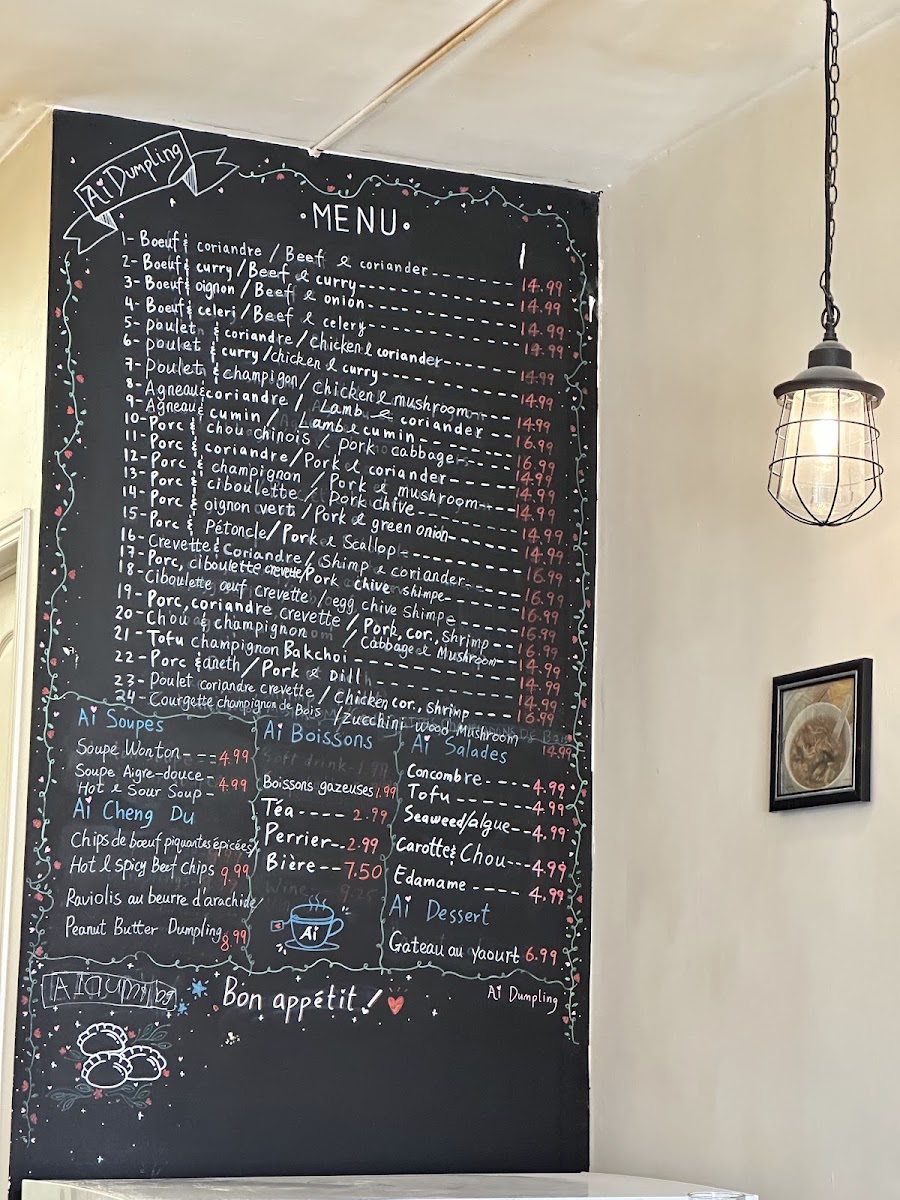 Ai Dumpling
MENU
1- Boeuf & coriandre / Beef & coriander ------- 14.99
2- Boeuf & curry / Beef & curry ------- 14.99
3- Boeuf & oignon / Beef & onion ------- 14.99
4- Boeuf & celeri / Beef & celery ------- 14.99
5- poulet & coriandre / Chicken & coriander ------- 14.99
6- poulet & curry / chicken & curry ------- 14.99
7- Poulet & champigon / Chicken & mushroom ------- 14.99
8- Agneau & coriandre / Lamb & coriander --- 16.99
9- Agneau & cumin / Lamb & cumin ------- 16.99
10- Porc & chou chinois / pork cabbage ------- 14.99
11- Porc & coriandre / Pork & coriander ------- 14.99
12- Porc & champignon / Pork & mushroom ------- 14.99
13- Porc & ciboulette / Pork chive ------- 14.99
14- Porc & oignon vert / Pork & green onion ------- 14.99
15- Porc & Pétoncle / Pork & Scallop ------- 16.99
16- Crevette & Coriandre / Shimp & coriander ------- 16.99
17- Porc, ciboulette crevette / Pork chive shimpe ------- 16.99
18- Ciboulette œuf crevette / egg chive Shimpe ------- 16.99
19- Porc, coriandre crevette / Pork, cor., shrimp --- 16.99
20- Chou & champignon / Cabbage & Mushroom --- 14.99
21- Tofu champignon Bakchoi ------- 14.99
22- Porc & aneth / Pork & Dill ------- 14.99
23- Poulet coriandre crevette / Chicken cor., shrimp --- 16.99
24- Courgette champignon de Bois / Zucchini wood Mushroom 14.99
Ai Soupes
Soupe Wonton --- 4.99
Soupe Aigre-douce -
Hot & Sour Soup - 4.99
Ai Cheng Du
Chips de bœuf piquantes épicées/
Hot & Spicy Beef Chips 9.99
Raviolis au beurre d'arachide/
Peanut Butter Dumpling 8.99
Ai Boissons
Soft drink - 1.99
Boissons gazeuses 1.99
Téa ---- 2.99
Perrier -- 2.99
Bière --- 7.50
Wine
Ai
Ai Salades
Concombre --- 4.99
Tofu ------ 4.99
Seaweed/algue -- 4.99
Carotte & Chou --- 4.99
Edamame ----- 4.99
Ai Dessert
Gateau au yaourt 6.99
Bon appétit!
Ai Dumpling